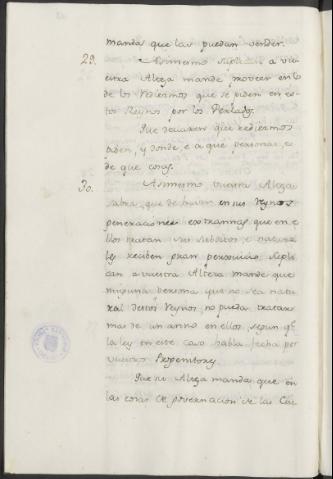 mandas que las puedan vender.
29. Asimismo suplican a vue
stra Alteza mande proveer en lo
de los Rediezmos que se piden en es
tos Reynos por los Perlados.
Que declaren que rediezmos
piden, y donde, e a que personas, e
de que cosas.
30. Asimismo vuestra Alteza
sabra, que de haver en sus Reynos
generaciones extrannas que en e
llos tratan sus subditos e natura
les reciben gran perjuicio, supli
can a vuestra Alteza mande que
ninguna persona que no sea natu
ral destos Reynos no pueda tratar
mas de un anno en ellos, segun q.e
la ley en este caso habla fecha por
vuestros Progenitores.
Que su Alteza manda que en
las cosas de governacion de las